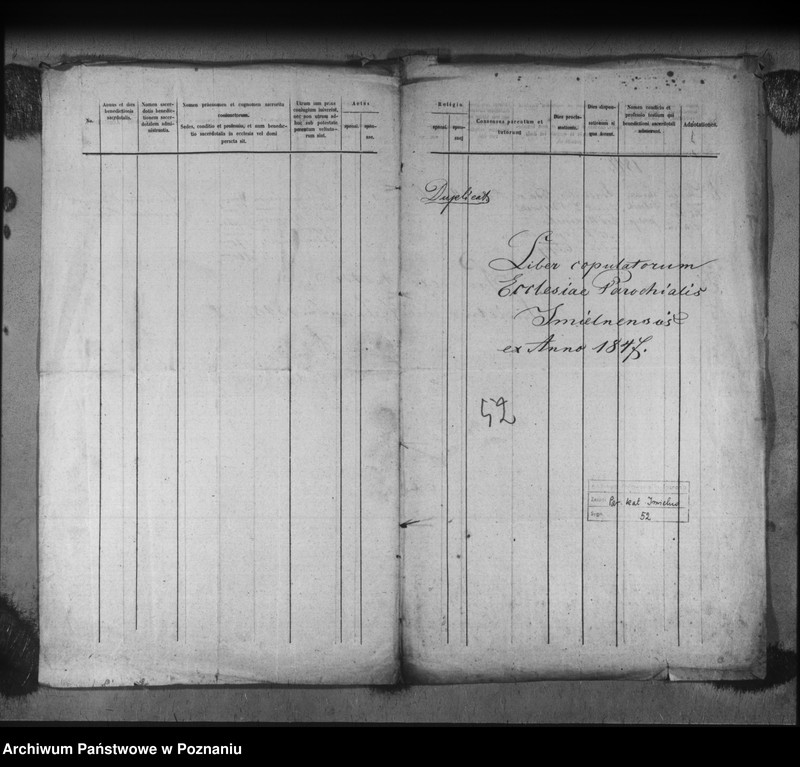 No.
Annus et dies
benedictionis
sacerdotalis.
Nomen sacer-
dotis benedic-
tionem sacer-
dotalem admi-
nistrantis.
Nomen praenomen et cognomen sacrorta
connectorum.
Sedes, conditio et professio, et num benedic-
tio sacerdotalis in ecclesia vel domi
peracta sit.
Utrum jam prius
conjugium
nec non utrum ad-
huc sub potestate
parentum
rum sint.
Aetas
sponsi.
spon-
sae.
Religio
sponsi.
spon-
sae
Consensus parentum et
tutorum
Dies procla-
mationis.
Dies
et
qua
Nomen conditio et
professio testium qui
benedictioni sacerdotali
Adnotationes.
Duplicat
Liber copulatorum
Ecclesiae Parochialis
Imielnensis
ex Anno 1847.
52
Par. kat Imielno
Sygn. 52
Archiwum Państwowe w Poznaniu